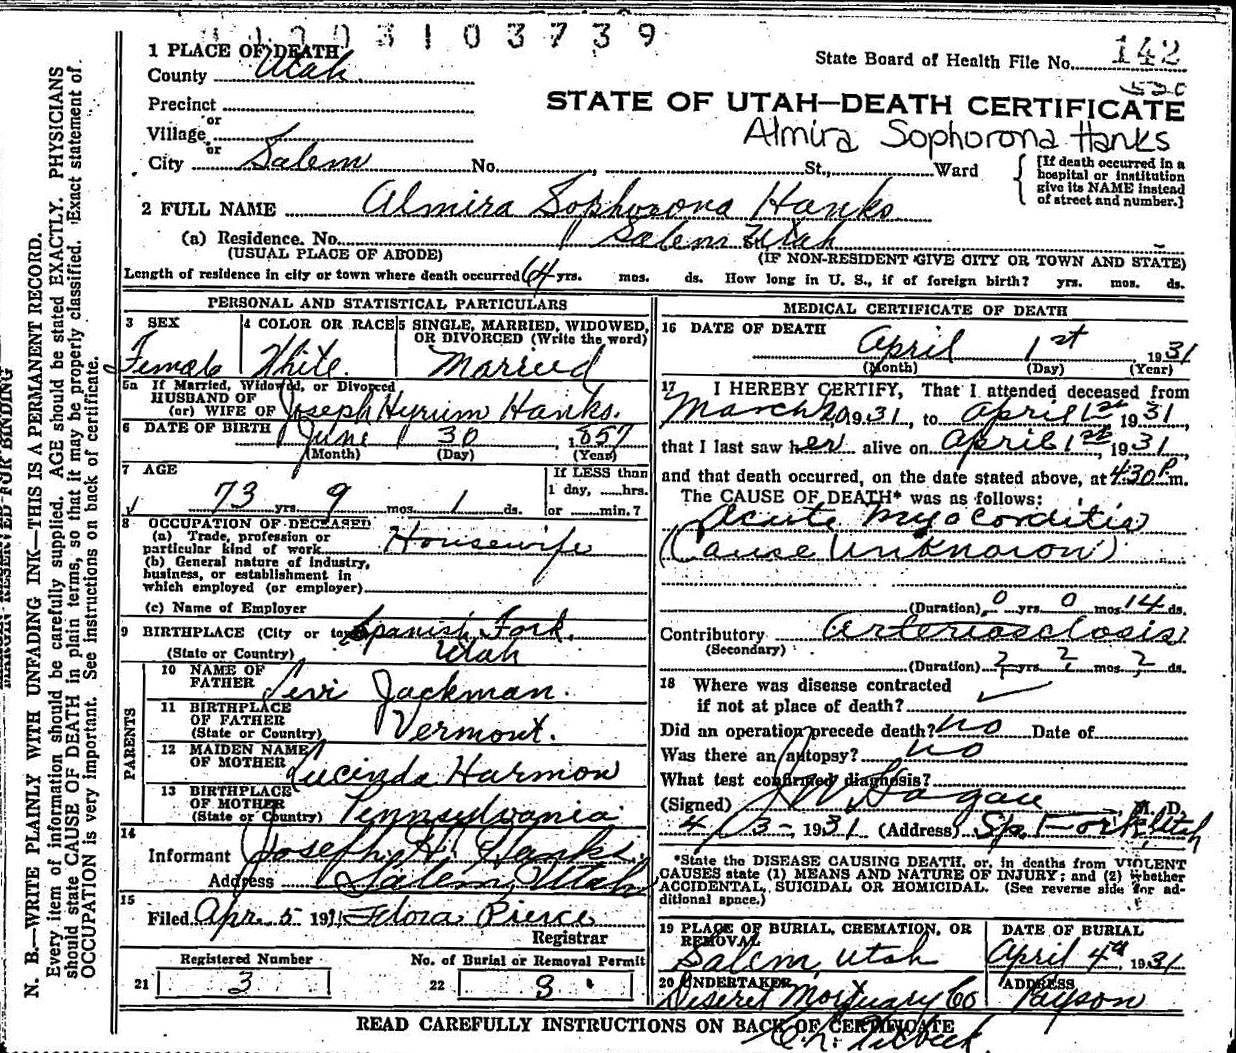 3103739
1 PLACE OF DEATH
County Utah
State Board of Health File No. 142
Precinct
or
Village
or
City Salem No. , St., Ward
STATE OF UTAH—DEATH CERTIFICATE
Almira Sophorona Hanks
[If death occurred in a
hospital or institution
give its NAME instead
of street and number.]
2 FULL NAME Almira Sophorona Hanks
(a) Residence. No. Salem Utah
(USUAL PLACE OF ABODE) (IF NON-RESIDENT GIVE CITY OR TOWN AND STATE)
Length of residence in city or town where death occurred 64 yrs. mos. ds. How long in U. S., if of foreign birth? yrs. mos. ds.
PERSONAL AND STATISTICAL PARTICULARS
3 SEX
Female
4 COLOR OR RACE
White.
5 SINGLE, MARRIED, WIDOWED,
OR DIVORCED (Write the word)
Married
5a If Married, Widowed, or Divorced
HUSBAND OF
(or) WIFE OF Joseph Hyrum Hanks.
6 DATE OF BIRTH June 30 1857
(Month) (Day) (Year)
7 AGE
73 yrs. 9 mos. 1 ds.
If LESS than
1 day, hrs.
or min.?
8 OCCUPATION OF DECEASED
(a) Trade, profession or
particular kind of work Housewife
(b) General nature of industry,
business, or establishment in
which employed (or employer)
(c) Name of Employer
9 BIRTHPLACE (City or town) Spanish Fork.
(State or Country) Utah
PARENTS
10 NAME OF
FATHER Levi Jackman.
11 BIRTHPLACE
OF FATHER
(State or Country) Vermont.
12 MAIDEN NAME
OF MOTHER Lucinda Harmon
13 BIRTHPLACE
OF MOTHER
(State or Country) Pennsylvania
14
Informant Joseph H. Hanks.
Address Salem, Utah
15
Filed Apr. 5 1931 Flora Pierce
Registrar
Registered Number
21 3
No. of Burial or Removal Permit
22 3
MEDICAL CERTIFICATE OF DEATH
16 DATE OF DEATH
April 1st, 1931
(Month) (Day) (Year)
17 I HEREBY CERTIFY, That I attended deceased from
March 20, 1931, to April 1st 1931
that I last saw her alive on April 1st, 1931,
and that death occurred, on the date stated above, at 4:30 P m.
The CAUSE OF DEATH* was as follows:
Acute Myocorditis
(Cause Unknown)
(Duration) 0 yrs. 0 mos. 14 ds.
Contributory Arteriosclosis
(Secondary)
(Duration) ? yrs. ? mos. ? ds.
18 Where was disease contracted
if not at place of death?
Did an operation precede death? no Date of
Was there an autopsy? no
What test confirmed diagnosis?
(Signed) J W Hagan M. D.
4/3-, 1931 (Address) Sp. Fork Utah
*State the DISEASE CAUSING DEATH, or, in deaths from VIOLENT
CAUSES state (1) MEANS AND NATURE OF INJURY; and (2) whether
ACCIDENTAL, SUICIDAL OR HOMICIDAL. (See reverse side for ad-
ditional space.)
19 PLACE OF BURIAL, CREMATION, OR
REMOVAL
Salem, Utah
DATE OF BURIAL
April 4, 1931
20 UNDERTAKER
Deseret Mortuary Co
ADDRESS
Payson
READ CAREFULLY INSTRUCTIONS ON BACK OF CERTIFICATE
MARGIN RESERVED FOR BINDING
N. B.—WRITE PLAINLY WITH UNFADING INK—THIS IS A PERMANENT RECORD.
Every item of information should be carefully supplied. AGE should be stated EXACTLY. PHYSICIANS
should state CAUSE OF DEATH in plain terms, so that it may be properly classified. Exact statement of
OCCUPATION is very important. See instructions on back of certificate.